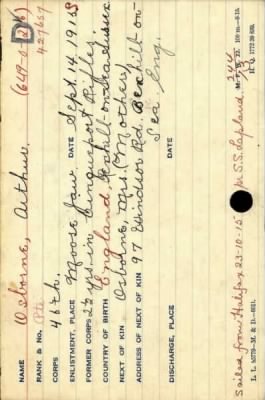 (649-0-26)
D
427657
NAME Osborne, Arthur.
RANK & No. Pte
CORPS 46th.
ENLISTMENT, PLACE Moose Jaw. DATE Sept. 14, 1915
FORMER CORPS 2½ yrs-in Cinqueport Rifles.
COUNTRY OF BIRTH England, Bexhill-on-Sea Sussex
NEXT OF KIN Osborne, Mrs. (Mother)
ADDRESS OF NEXT OF KIN 97 Windsor Rd. Bexhill-on-
Sea Eng.
DISCHARGE, PLACE DATE
Sailed from Halifax 23-10-15 per S.S. Lapland.
L. L. 85779—M. & D.—6851.
H. Q. 1772-39-839.